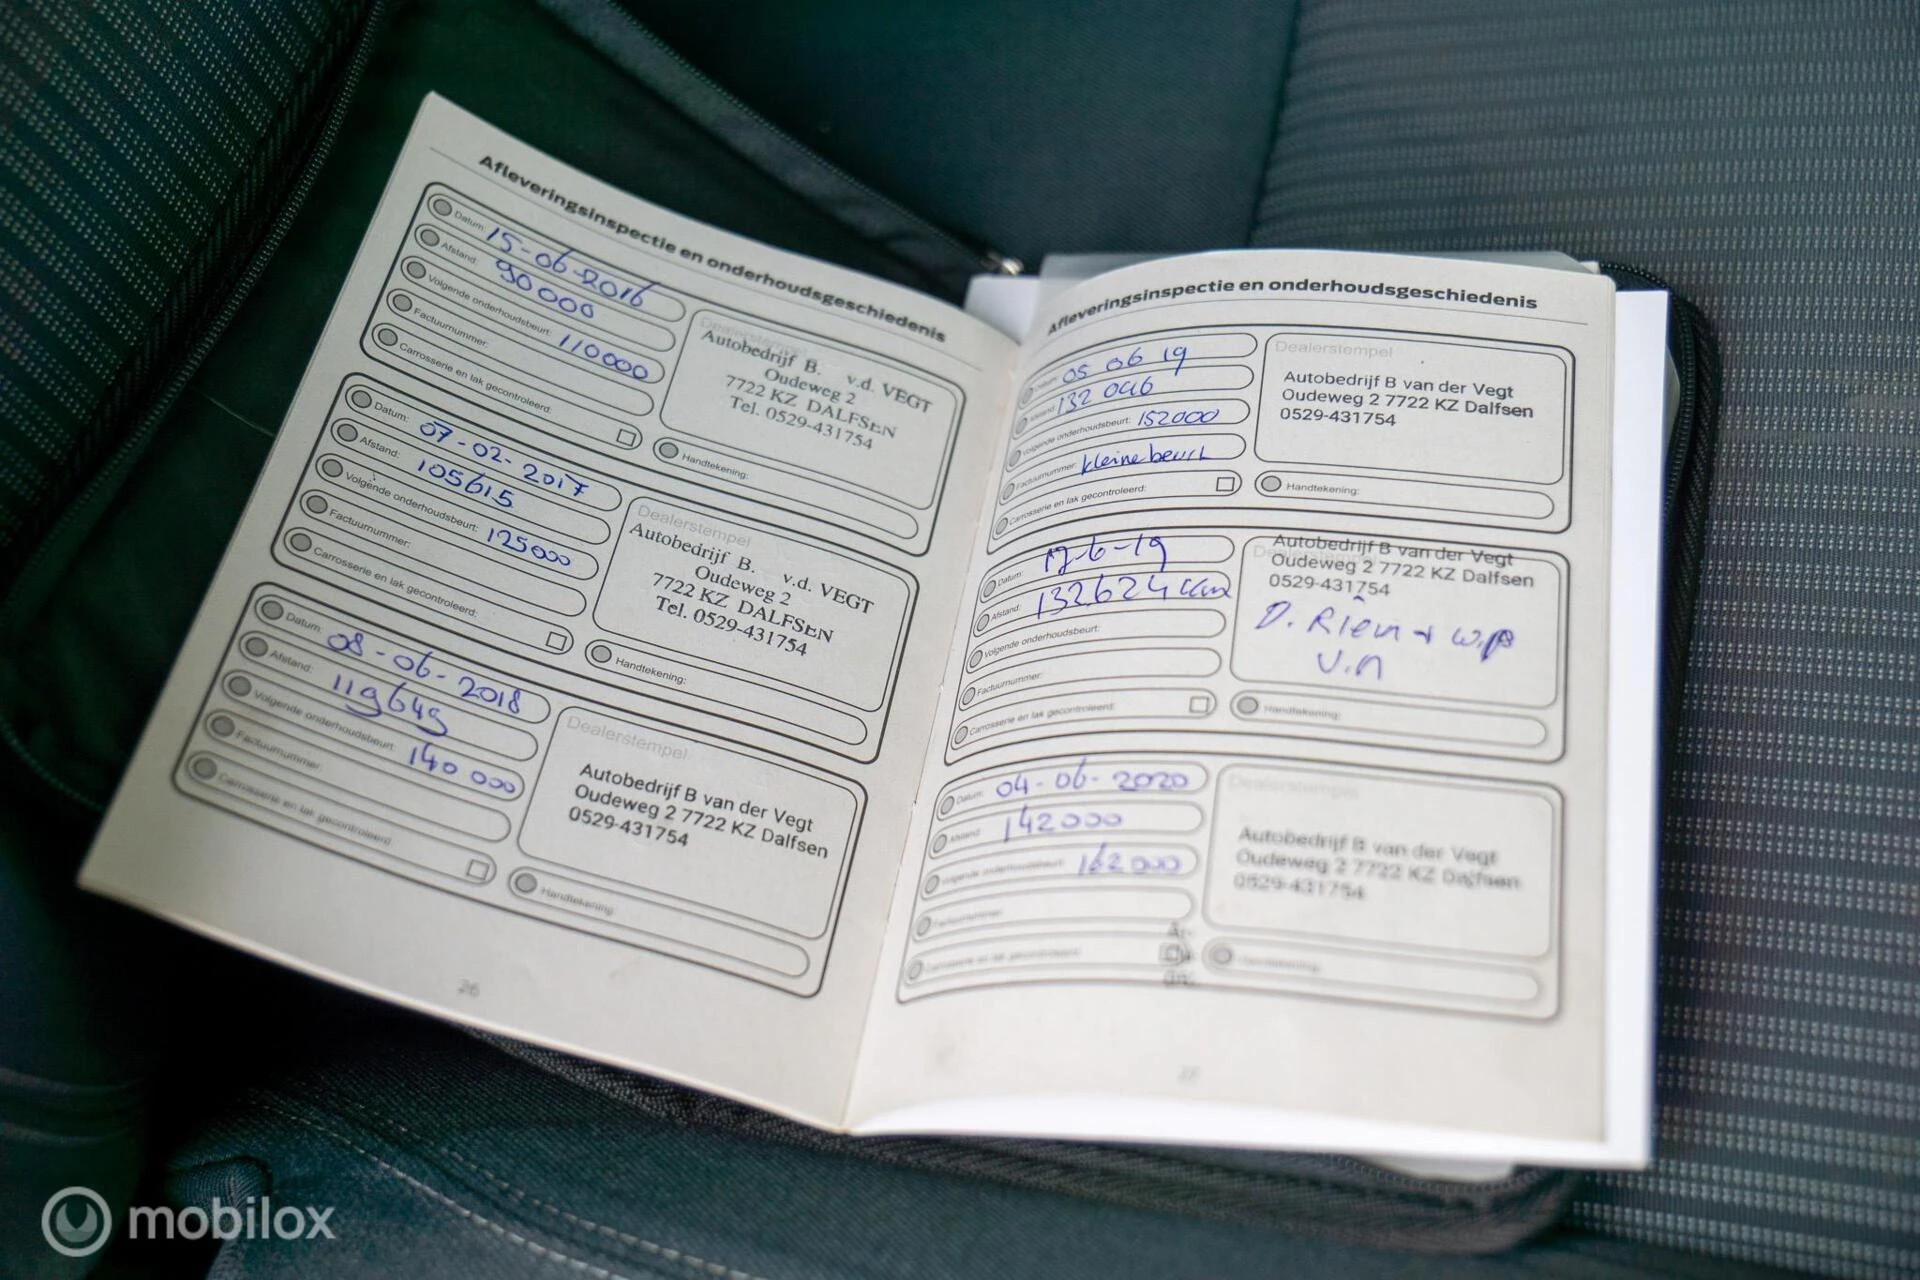 Afleveringsinspectie en onderhoudsgeschiedenis
Datum: 15-06-2016
Afstand: 90000
Volgende onderhoudsbeurt: 110000
Factuurnummer:
Carrosserie en lak gecontroleerd:
Dealerstempel
Autobedrijf B. v.d. VEGT
Oudeweg 2
7722 KZ DALFSEN
Tel. 0529-431754
Handtekening:
Datum: 07-02-2017
Afstand: 105615
Volgende onderhoudsbeurt: 125000
Factuurnummer:
Carrosserie en lak gecontroleerd:
Dealerstempel
Autobedrijf B. v.d. VEGT
Oudeweg 2
7722 KZ DALFSEN
Tel. 0529-431754
Handtekening:
Datum: 08-06-2018
Afstand: 119649
Volgende onderhoudsbeurt: 140 000
Factuurnummer:
Carrosserie en lak gecontroleerd:
Dealerstempel
Autobedrijf B van der Vegt
Oudeweg 2 7722 KZ Dalfsen
0529-431754
Handtekening:
26
Afleveringsinspectie en onderhoudsgeschiedenis
Datum: 05 06 19
Afstand: 132 046
Volgende onderhoudsbeurt: 152000
Factuurnummer: kleine beurt
Carrosserie en lak gecontroleerd:
Dealerstempel
Autobedrijf B van der Vegt
Oudeweg 2 7722 KZ Dalfsen
0529-431754
Handtekening:
Datum: 17-6-19
Afstand: 132.624 km
Volgende onderhoudsbeurt:
Factuurnummer:
Carrosserie en lak gecontroleerd:
Autobedrijf B van der Vegt
Oudeweg 2 7722 KZ Dalfsen
0529-431754
D. Riem + w.p
V.n
Handtekening:
Datum: 04-06-2020
Afstand: 142000
Volgende onderhoudsbeurt: 162000
Factuurnummer:
Carrosserie en lak gecontroleerd:
Dealerstempel
Autobedrijf B van der Vegt
Oudeweg 2 7722 KZ Dalfsen
0529-431754
Handtekening:
27
mobilox